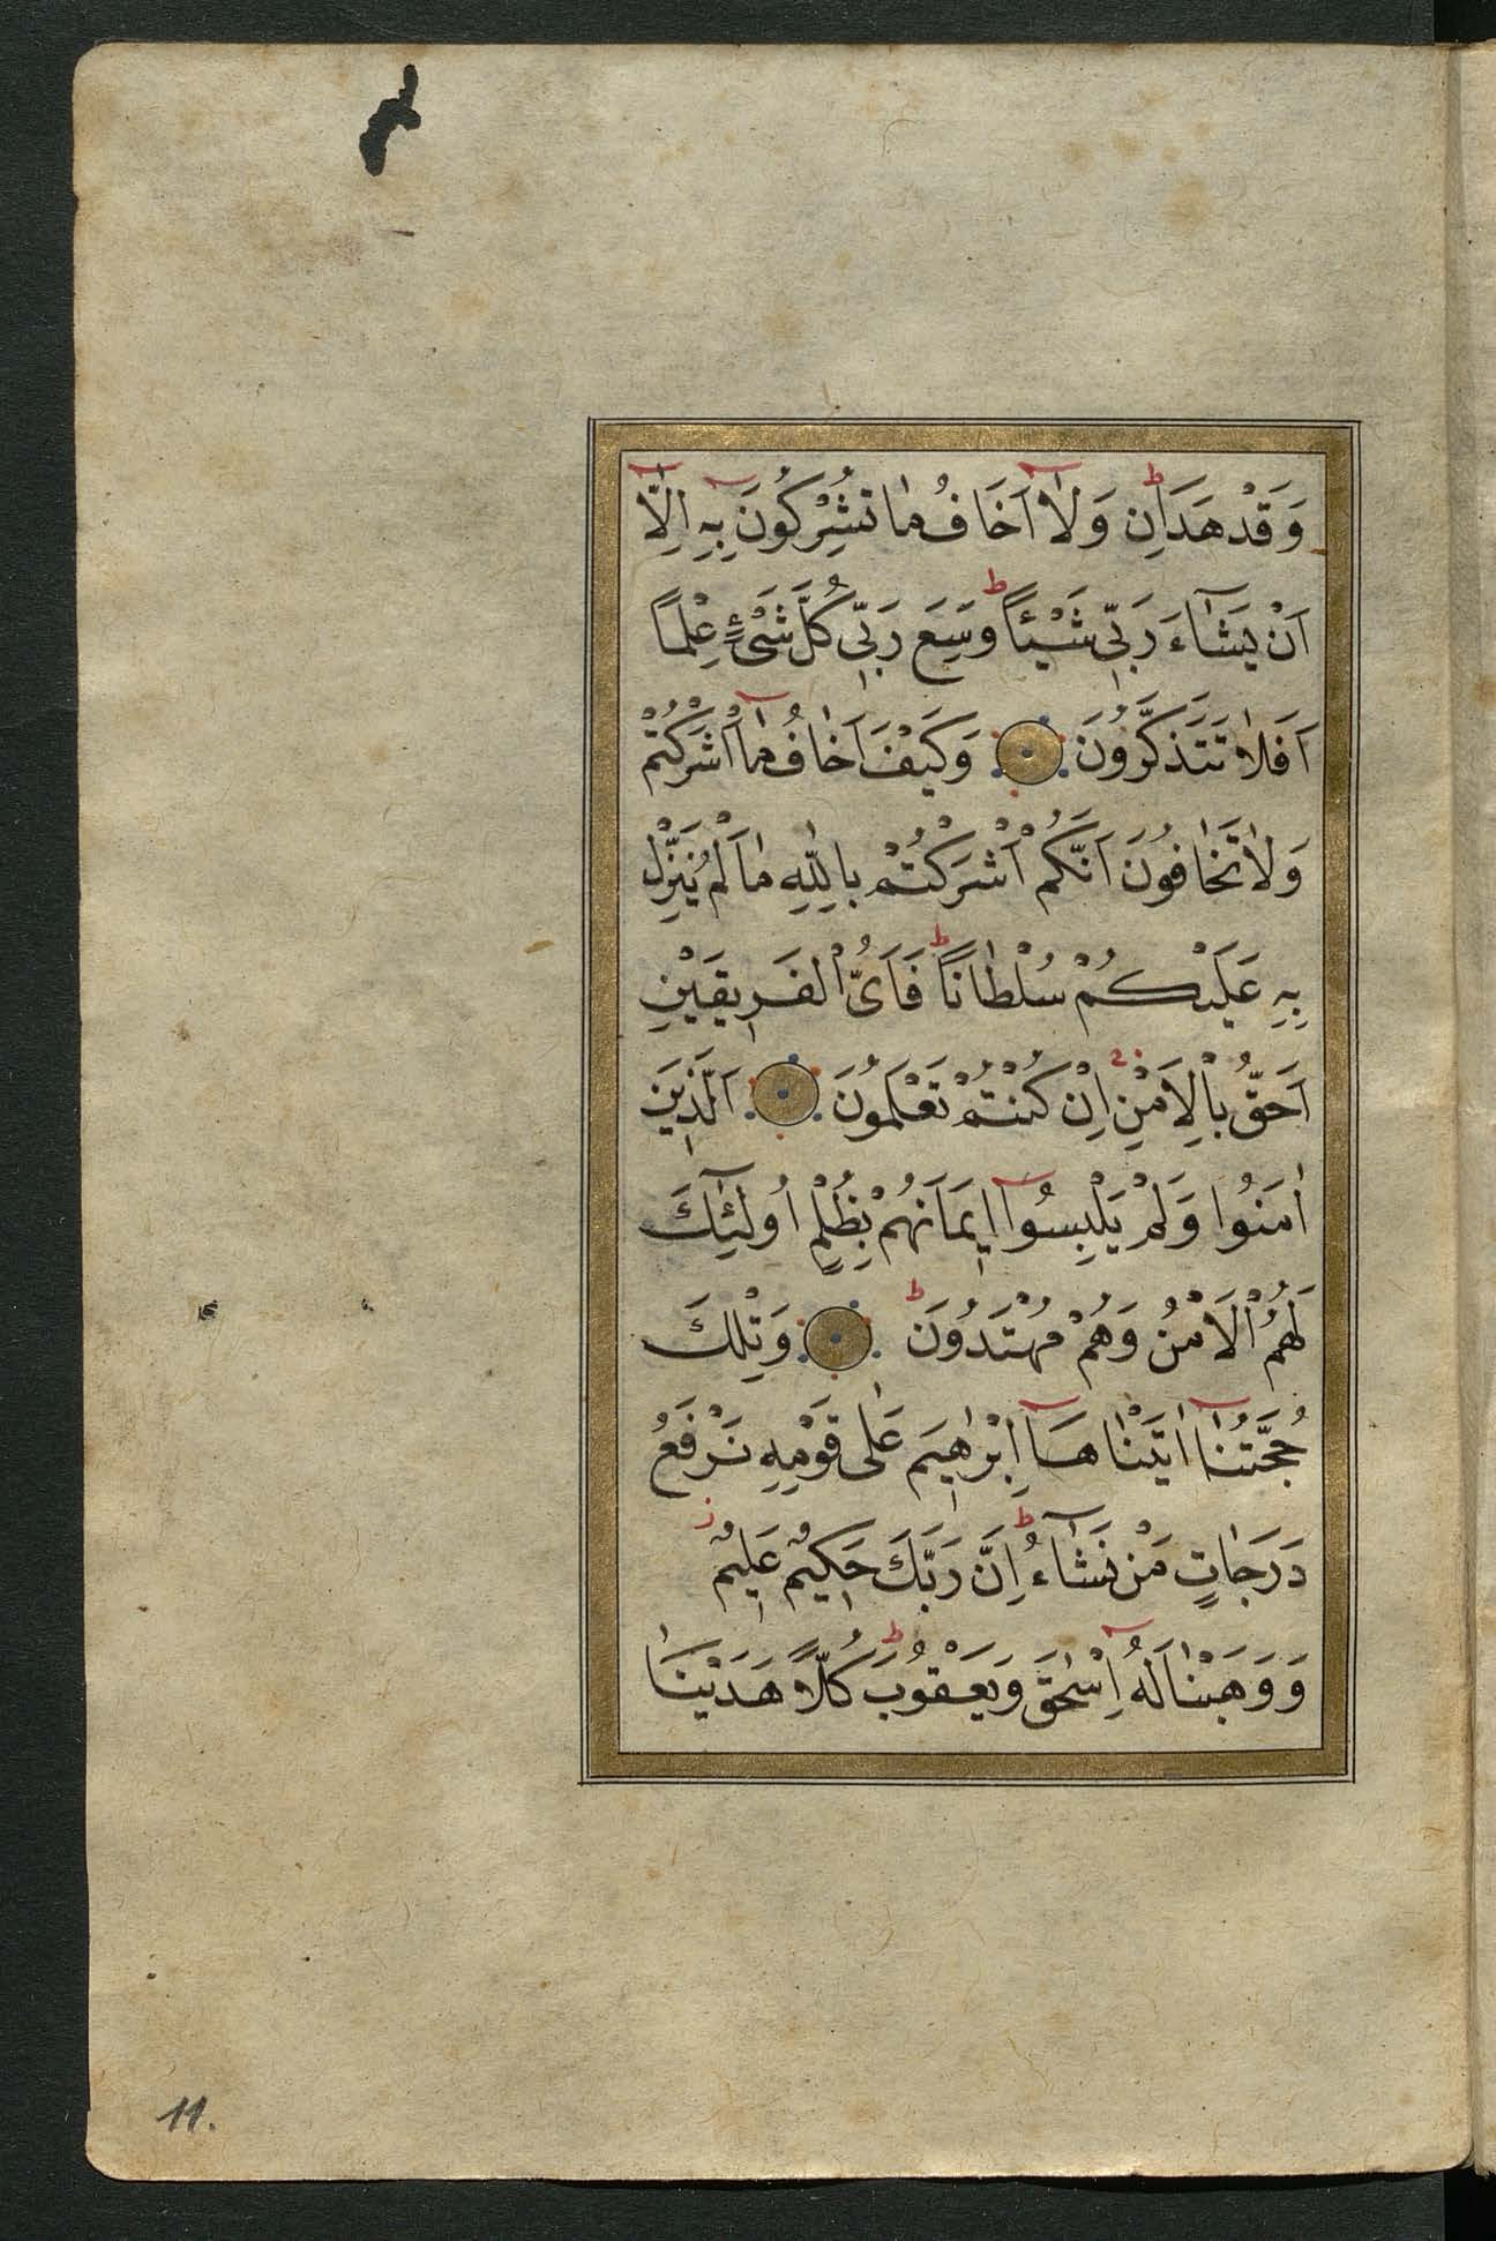 وَقَدْ هَدَانِ وَلَا اَخَافُ مَا تُشْرِكُونَ بِهِ اِلَّا
اَنْ يَشَٓاءَ رَبّ۪ى شَيْئًا وَسِعَ رَبّ۪ى كُلَّ شَىْءٍ عِلْمًا
اَفَلَا تَتَذَكَّرُونَ وَكَيْفَ اَخَافُ مَٓا اَشْرَكْتُمْ
وَلَا تَخَافُونَ اَنَّكُمْ اَشْرَكْتُمْ بِاللّٰهِ مَا لَمْ يُنَزِّلْ
بِهِ عَلَيْكُمْ سُلْطَانًا فَاَىُّ الْفَر۪يقَيْنِ
اَحَقُّ بِالْاَمْنِ اِنْ كُنْتُمْ تَعْلَمُونَ اَلَّذ۪ينَ
اٰمَنُوا وَلَمْ يَلْبِسُوا ا۪يمَانَهُمْ بِظُلْمٍ اُولٰٓئِكَ
لَهُمُ الْاَمْنُ وَهُمْ مُهْتَدُونَ وَتِلْكَ
حُجَّتُنَٓا اٰتَيْنَاهَا اِبْرٰه۪يمَ عَلٰى قَوْمِهِ نَرْفَعُ
دَرَجَاتٍ مَنْ نَشَٓاءُ اِنَّ رَبَّكَ حَك۪يمٌ عَل۪يمٌ
وَوَهَبْنَا لَهُ اِسْحٰقَ وَيَعْقُوبَ كُلًّا هَدَيْنَا
11.